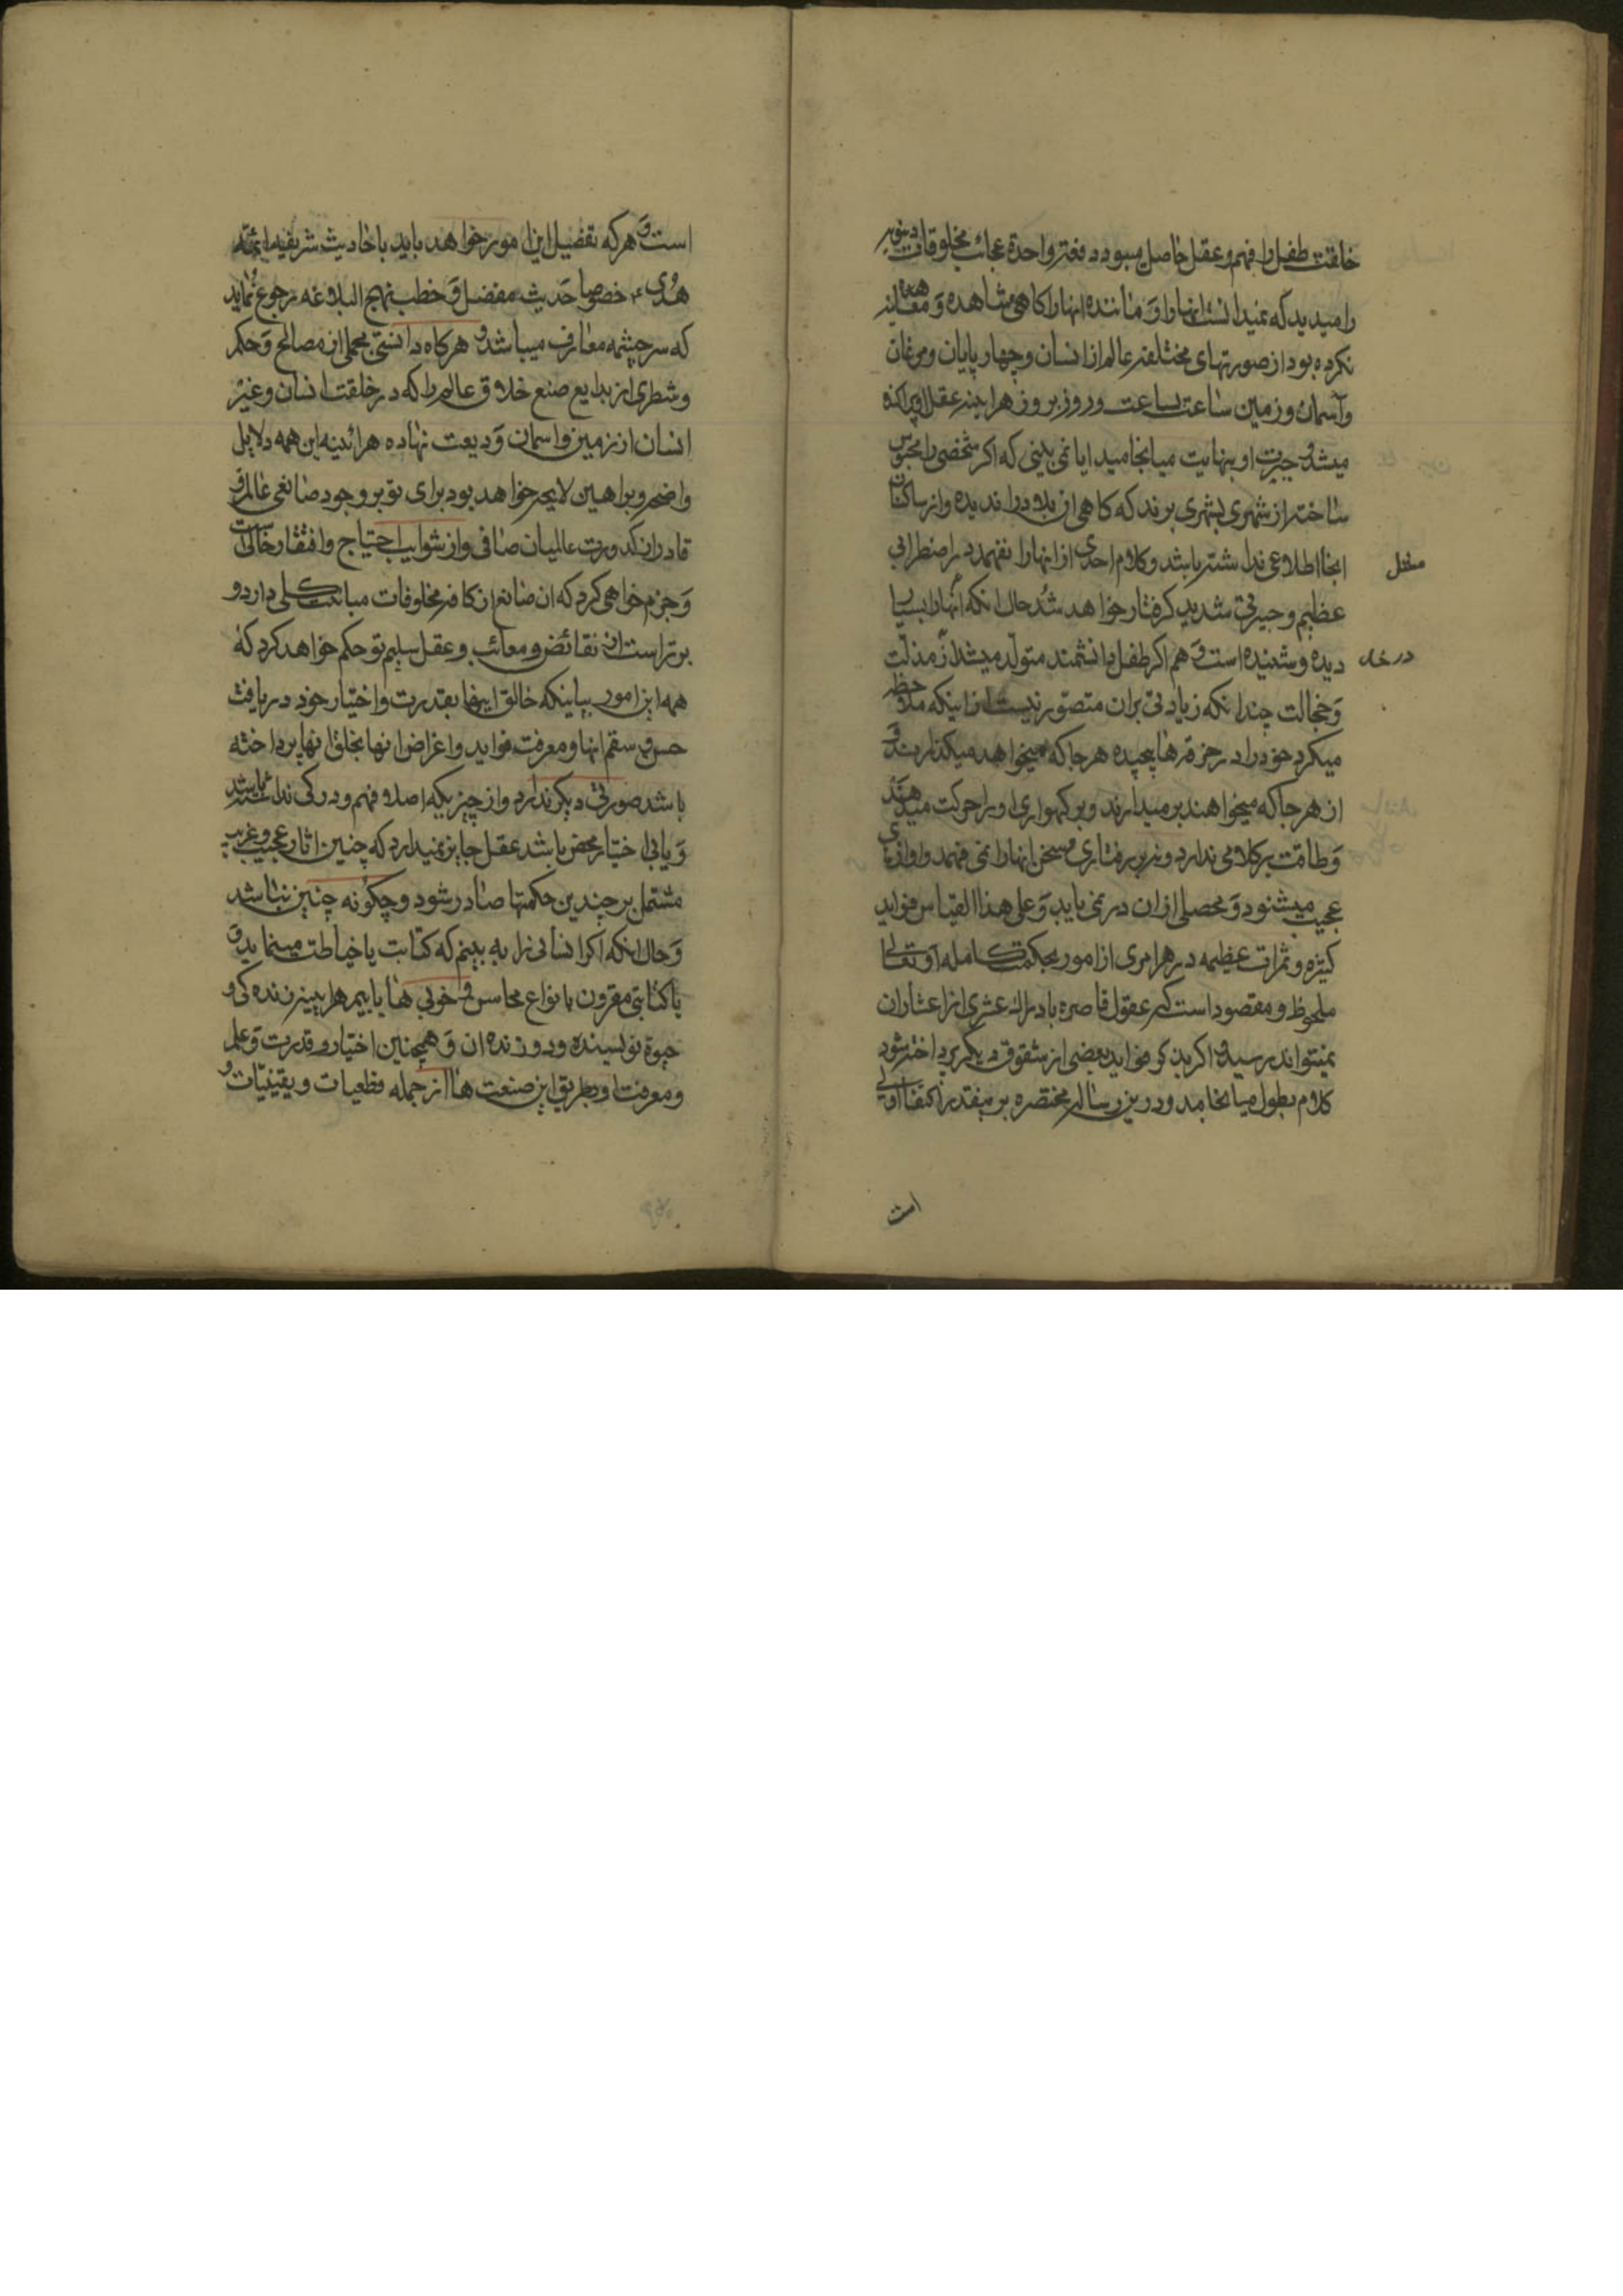 خلقت طفل را فهم و عقل حاصل میبود دفعة واحدة عجائب مخلوقات
را میدید که نمیدانست انها را و مانند انها را کاهی مشاهده و معاینه
نکرده بود از صورتهای مختلفه عالم از انسان و چهار پایان و مرغان
و آسمان و زمین ساعت بساعت و روز بروز هراینه عقل او پراکنده
میشد و حیرت او بنهایت میانجامید ایا نمی بینی که اکر شخصی را محبوس
ساخته از شهری بشهری برند که کاهی از بلاد را ندیده و از ساکنان
انجا اطلاعی نداشته باشد و کلام احدی از انها را نفهمد در اضطرابی
عظیم و حیرتی شدید کرفتار خواهد شد حال انکه انها را بسیار
دیده و شنیده است و هم اکر طفل دانشمند متولد میشد از مذلت
و خجالت چندانکه زیادتی بران متصور نیست از اینکه ملاحظه
میکرد خود را در خرقه ها پیچیده هر جا که میخواهد میکذارند و
از هر جا که میخواهند بر میدارند و بر کهواره او را حرکت میدهند
و طاقت بر کلامی ندارد و نه بر رفتاری و سخن انها را نمی فهمد و اوازی
عجیب میشنود و محصلی از ان در نمی یابد و علی هذا القیاس فواید
کثیره و ثمرات عظیمه در هر امری از امور بحکمت کامله او تعالی
ملحوظ و مقصود است که عقول قاصره بادراک عشری از اعشار ان
نمیتواند رسید و اکر بذکر فواید بعضی از شقوق دیکر پرداخته شود
کلام بطول میانجامد و درین رساله مختصره برینقدر اکتفا اولی
است
است و هر که تفصیل این امور خواهد باید باحادیث شریفه ائمه
هدی ع خصوصا حدیث مفضل و خطب نهج البلاغه رجوع نماید
که سرچشمه معارف میباشد و هرکاه دانستی مجملی از مصالح و حکم
و شطری از بدایع صنع خلاق عالم را که در خلقت انسان و غیر
انسان از زمین و اسمان ودیعت نهاده هرائینه این همه دلایل
واضحه و براهین لایحه خواهد بود برای تو بر وجود صانعی عالم و
قادر از کدورت عالمیان صافی و از شوایب احتیاج و افتقار خالی است
و جزم خواهی کرد که ان صانع از کافه مخلوقات مباینت کلی دارد و
برتر است از نقائص و معائب و عقل سلیم تو حکم خواهد کرد که
همه این امور بیاینکه خالق اینها بقدرت و اختیار خود دریافت
حسن و سقم انها و معرفت فواید و اغراض انها بخلق انها پرداخته
باشد صورتی دیکر ندارد و از چیزیکه اصلا فهم و درکی نداشته باشد
و یا بی اختیار محض باشد عقل جایز نمیدارد که چنین اثار عجیب و غریب
مشتمل بر چندین حکمتها صادر شود و چکونه چنین نباشد
و حال انکه اکر انسانی را به بینم که کتابت یا خیاطت مینماید و
یا کتابتی مقرون بانواع محاسن و خوبی ها یابیم هراینه زنده کی و
حیوة نویسنده و دوزنده ان و همچنین اختیار و قدرت و علم
و معرفت او بطریق این صنعت ها از جمله قطعیات و یقینیات و